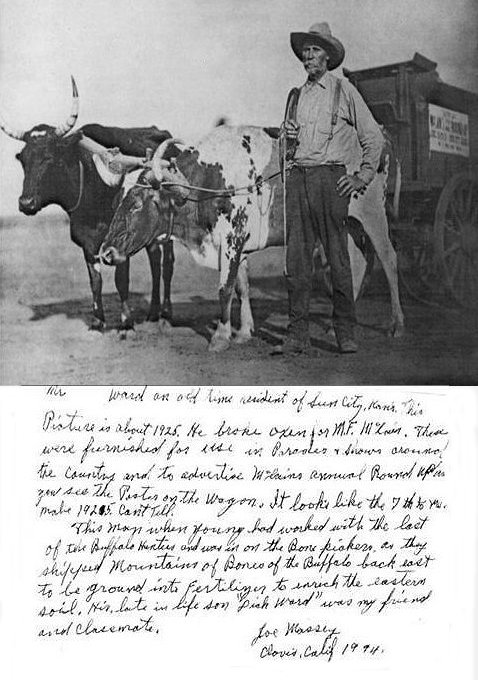 Mr Ward an old time resident of Sun City, Kans. This
Picture is about 1925. He broke oxen for M.F. McLain. These
were furnished for use in Parades & Shows around
the Country and to advertise McLains annual Round Up as
you see the Poster on the Wagon. It looks like the 7th
make 1925. Can't tell.
This man when young had worked with the last
of the Buffalo Hunters and was in on the Bone pickers, as they
shipped Mountains of Bones of the Buffalo back east
to be ground into Fertilizer to enrich the eastern
soil. His late in life son "Dick Ward" was my friend
and Classmate.
Joe Massey
Clovis, Calif 1994.